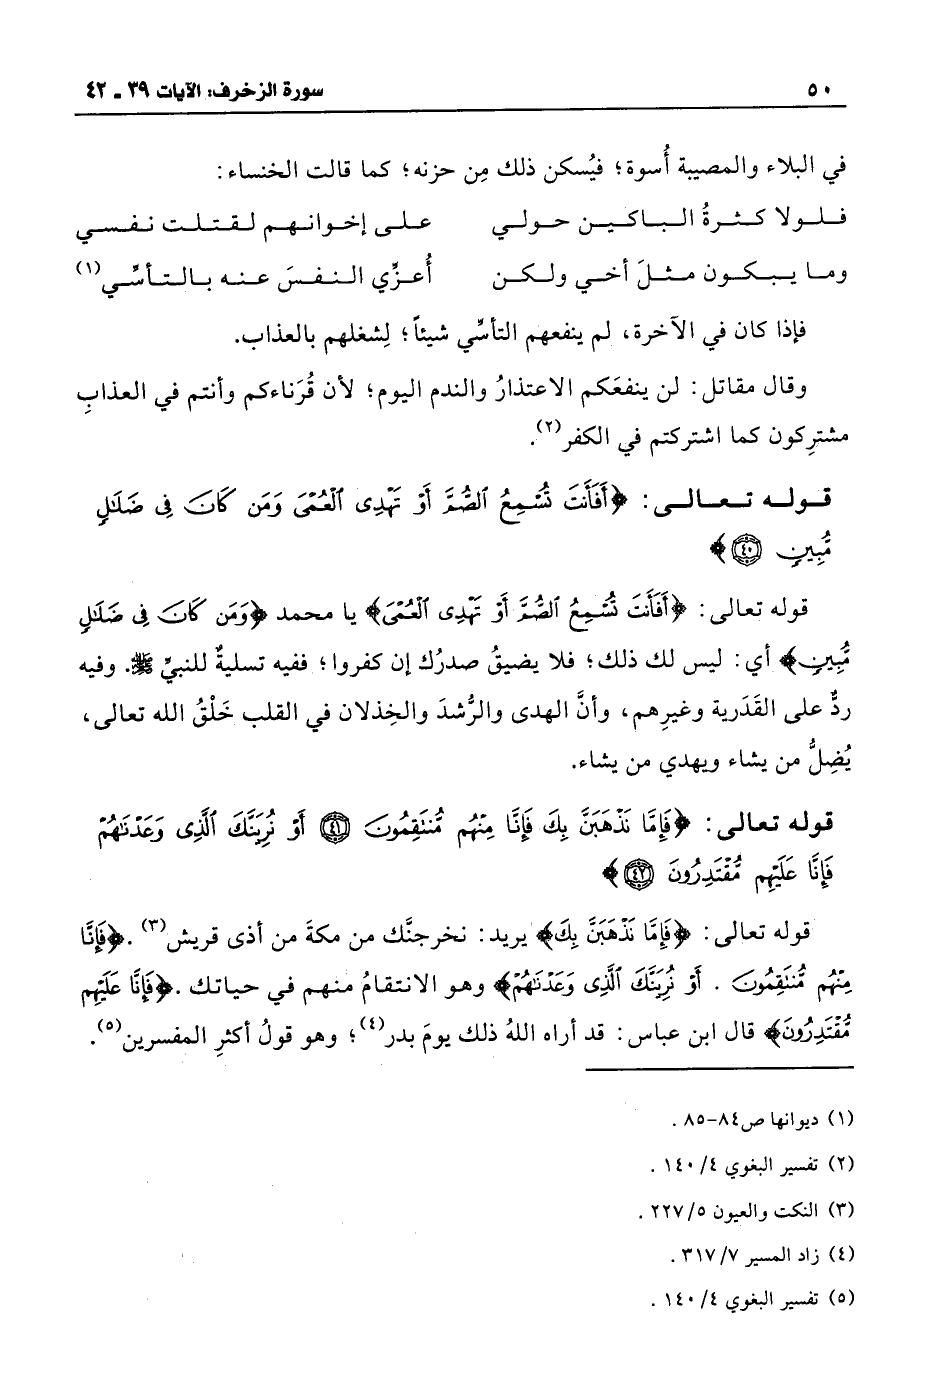 ٥٠ سورة الزخرف: الآيات ٣٩ - ٤٢
في البلاء والمصيبة أُسوة؛ فيُسكن ذلك مِن حزنه؛ كما قالت الخنساء:
فلولا كثرةُ الباكين حولي على إخوانهم لقتلت نفسي
وما يبكون مثلَ أخي ولكن أُعزِّي النفسَ عنه بالتأسِّي(١)
فإذا كان في الآخرة، لم ينفعهم التأسِّي شيئاً؛ لِشغلهم بالعذاب.
وقال مقاتل: لن ينفعَكم الاعتذارُ والندم اليوم؛ لأن قُرَناءكم وأنتم في العذابِ
مشتركون كما اشتركتم في الكفر(٢).
قوله تعالى: ﴿أَفَأَنتَ تُسْمِعُ ٱلصُّمَّ أَوْ تَهْدِى ٱلْعُمْىَ وَمَن كَانَ فِى ضَلَٰلٍ
مُّبِينٍ ﴿٤٠﴾﴾
قوله تعالى: ﴿أَفَأَنتَ تُسْمِعُ ٱلصُّمَّ أَوْ تَهْدِى ٱلْعُمْىَ﴾ يا محمد ﴿وَمَن كَانَ فِى ضَلَٰلٍ
مُّبِينٍ﴾ أي: ليس لك ذلك؛ فلا يضيقُ صدرُك إن كفروا؛ ففيه تسليةٌ للنبيِّ ﷺ. وفيه
ردٌّ على القَدَرية وغيرِهم، وأنَّ الهدى والرُّشدَ والخِذلان في القلب خَلْقُ الله تعالى،
يُضِلُّ من يشاء ويهدي من يشاء.
قوله تعالى: ﴿فَإِمَّا نَذْهَبَنَّ بِكَ فَإِنَّا مِنْهُم مُّنتَقِمُونَ ﴿٤١﴾ أَوْ نُرِيَنَّكَ ٱلَّذِى وَعَدْنَٰهُمْ
فَإِنَّا عَلَيْهِم مُّقْتَدِرُونَ ﴿٤٢﴾﴾
قوله تعالى: ﴿فَإِمَّا نَذْهَبَنَّ بِكَ﴾ يريد: نخرجنَّك من مكةَ من أذى قريش(٣). ﴿فَإِنَّا
مِنْهُم مُّنتَقِمُونَ. أَوْ نُرِيَنَّكَ ٱلَّذِى وَعَدْنَٰهُمْ﴾ وهو الانتقامُ منهم في حياتك. ﴿فَإِنَّا عَلَيْهِم
مُّقْتَدِرُونَ﴾ قال ابن عباس: قد أراه اللهُ ذلك يومَ بدر(٤)؛ وهو قولُ أكثرِ المفسرين(٥).
(١) ديوانها ص٨٤-٨٥ .
(٢) تفسير البغوي ٤/ ١٤٠ .
(٣) النكت والعيون ٥/ ٢٢٧ .
(٤) زاد المسير ٧/ ٣١٧ .
(٥) تفسير البغوي ٤/ ١٤٠ .